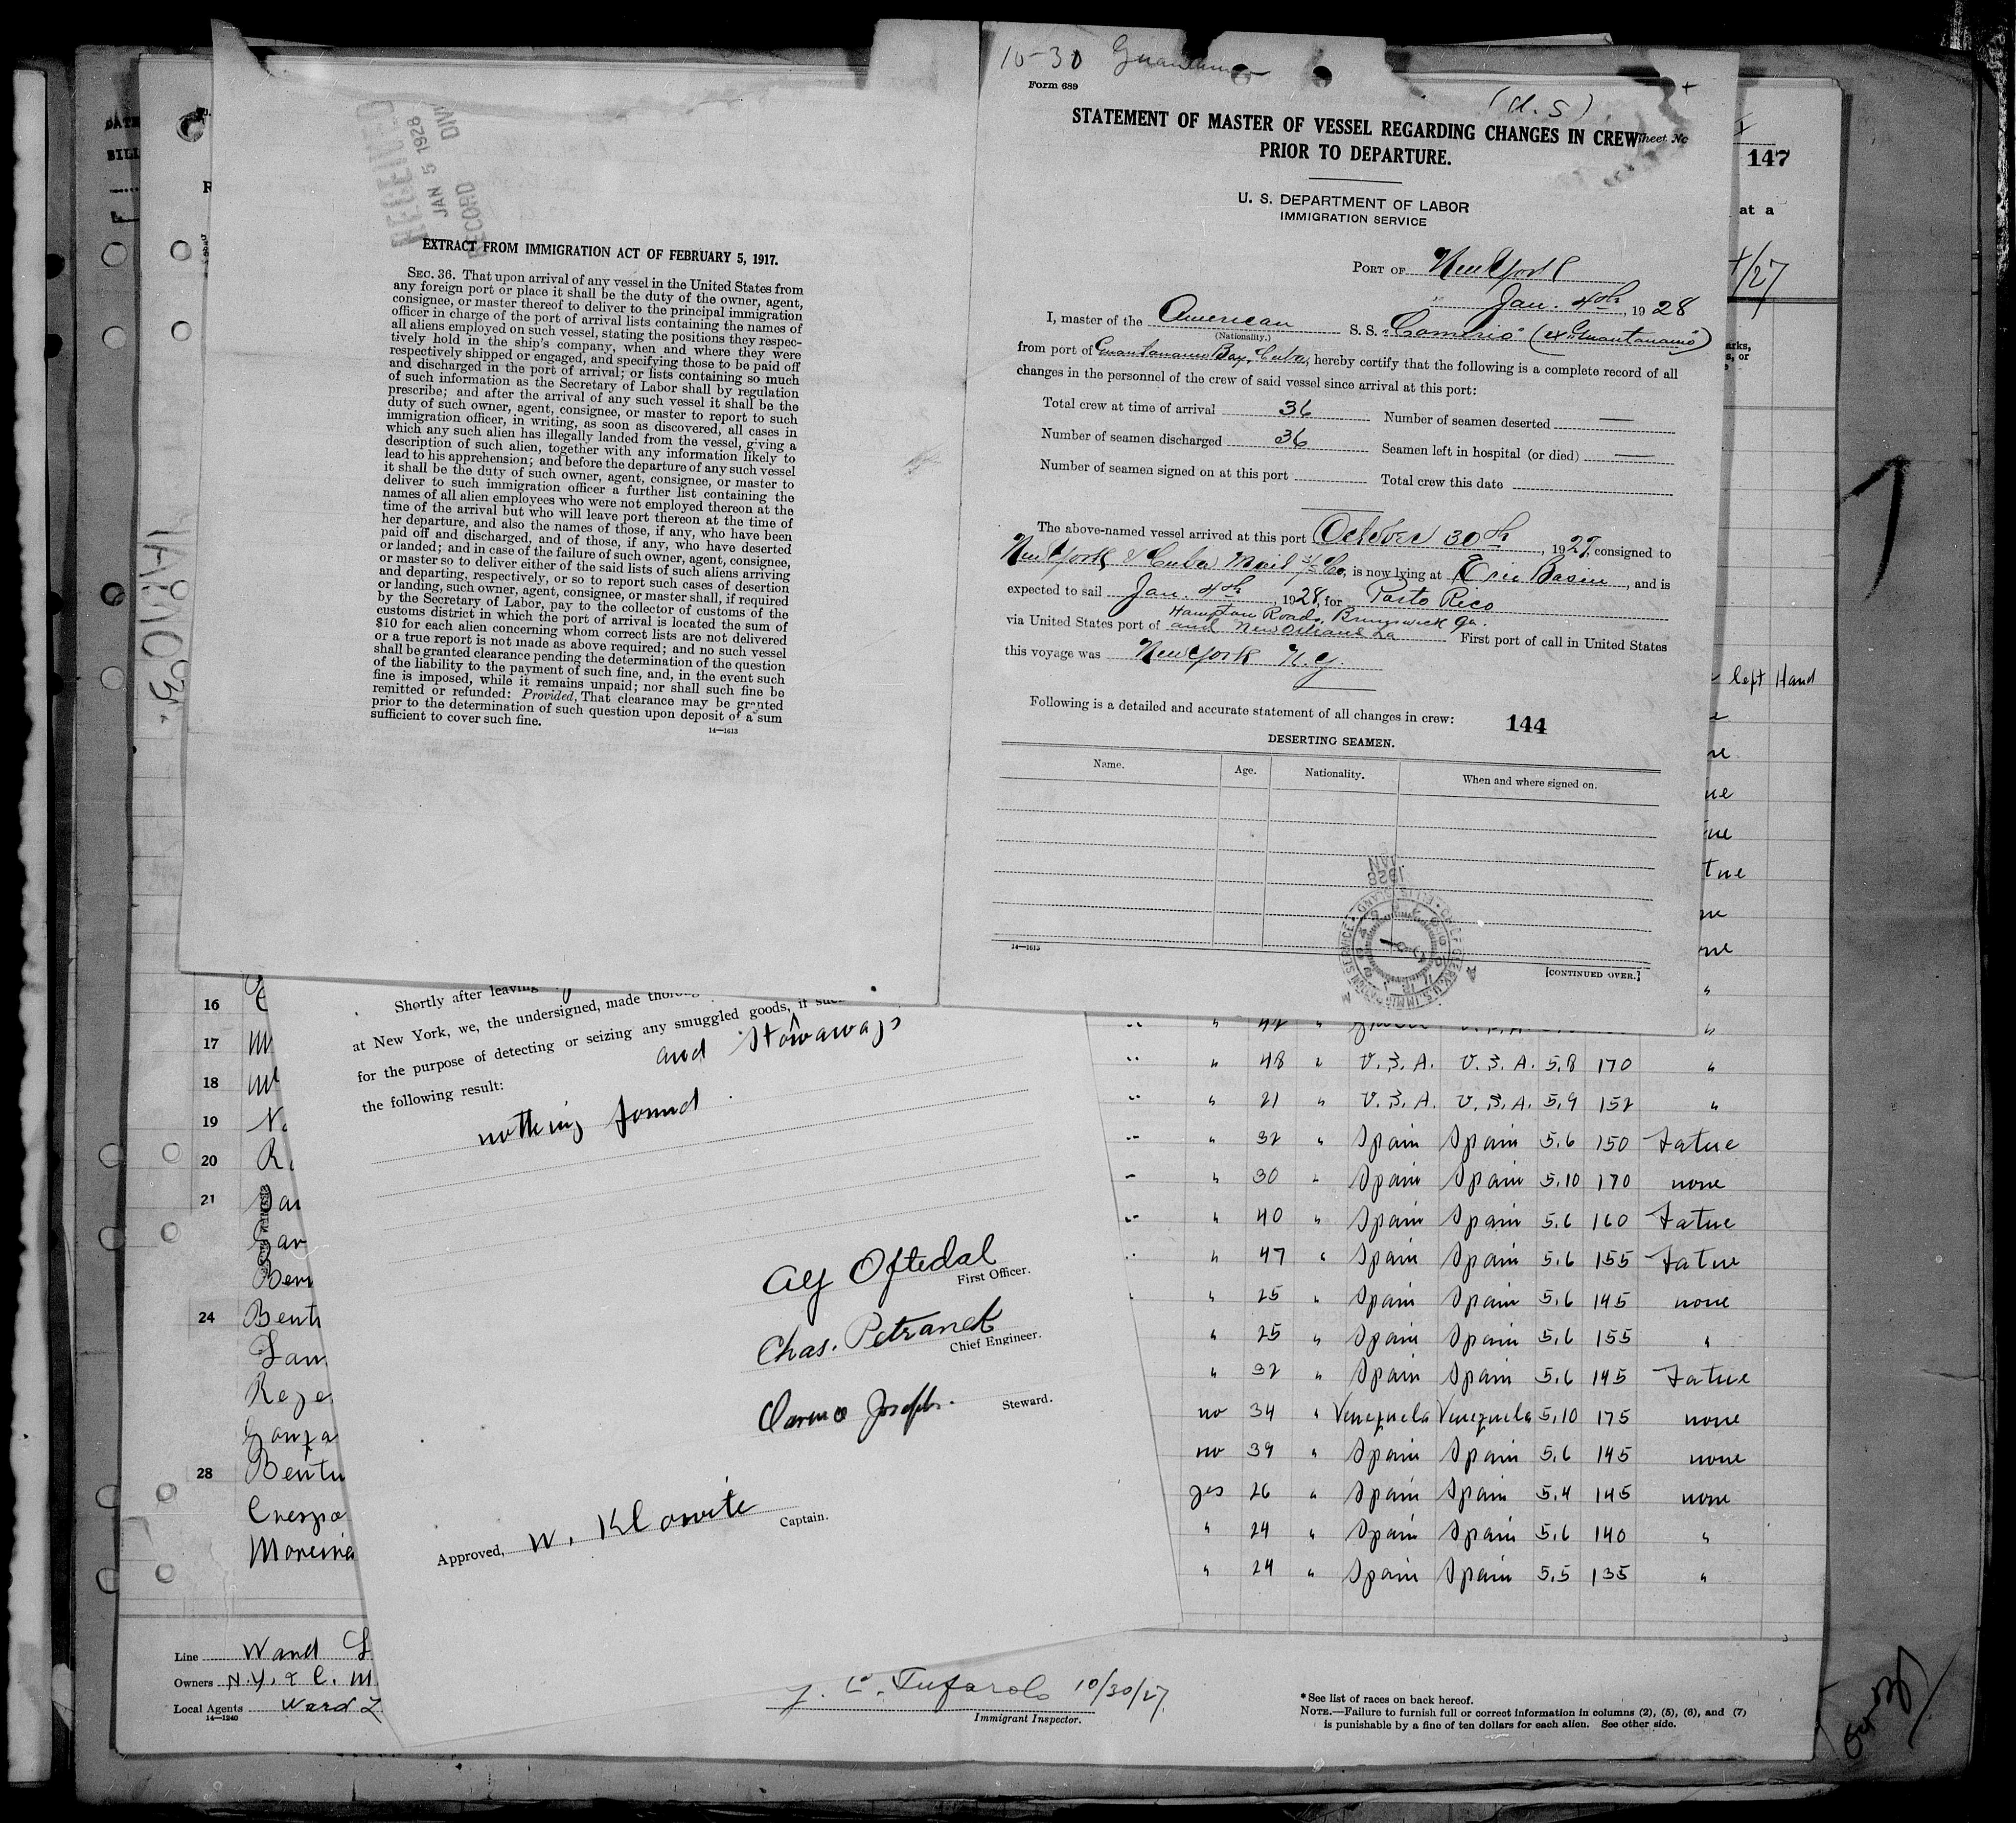 10-30
Form 689
STATEMENT OF MASTER OF VESSEL REGARDING CHANGES IN CREW
PRIOR TO DEPARTURE.
U. S. DEPARTMENT OF LABOR
IMMIGRATION SERVICE
PORT OF New York
Jan. 4th, 1928
I, master of the American S. S.
(Nationality.)
from port of Guantanamo Bay, Cuba, hereby certify that the following is a complete record of all
changes in the personnel of the crew of said vessel since arrival at this port:
Total crew at time of arrival 36 Number of seamen deserted —
Number of seamen discharged 36 Seamen left in hospital (or died) —
Number of seamen signed on at this port Total crew this date
The above-named vessel arrived at this port October 30th, 1927, consigned to
New York & Cuba Mail S/S Co, is now lying at Erie Basin, and is
expected to sail Jan. 4th, 1928, for Porto Rico
Hampton Roads, Brunswick Ga.
via United States port of and New Orleans La First port of call in United States
this voyage was New York N.Y.
Following is a detailed and accurate statement of all changes in crew: 144
DESERTING SEAMEN.
Name. Age. Nationality. When and where signed on.
14—1613
[CONTINUED OVER.]
RECEIVED
JAN 5 1928
RECORD DIV
EXTRACT FROM IMMIGRATION ACT OF FEBRUARY 5, 1917.
SEC. 36. That upon arrival of any vessel in the United States from
any foreign port or place it shall be the duty of the owner, agent,
consignee, or master thereof to deliver to the principal immigration
officer in charge of the port of arrival lists containing the names of
all aliens employed on such vessel, stating the positions they respec-
tively hold in the ship's company, when and where they were
respectively shipped or engaged, and specifying those to be paid off
and discharged in the port of arrival; or lists containing so much
of such information as the Secretary of Labor shall by regulation
prescribe; and after the arrival of any such vessel it shall be the
duty of such owner, agent, consignee, or master to report to such
immigration officer, in writing, as soon as discovered, all cases in
which any such alien has illegally landed from the vessel, giving a
description of such alien, together with any information likely to
lead to his apprehension; and before the departure of any such vessel
it shall be the duty of such owner, agent, consignee, or master to
deliver to such immigration officer a further list containing the
names of all alien employees who were not employed thereon at the
time of the arrival but who will leave port thereon at the time of
her departure, and also the names of those, if any, who have been
paid off and discharged, and of those, if any, who have deserted
or landed; and in case of the failure of such owner, agent, consignee,
or master so to deliver either of the said lists of such aliens arriving
and departing, respectively, or so to report such cases of desertion
or landing, such owner, agent, consignee, or master shall, if required
by the Secretary of Labor, pay to the collector of customs of the
customs district in which the port of arrival is located the sum of
$10 for each alien concerning whom correct lists are not delivered
or a true report is not made as above required; and no such vessel
shall be granted clearance pending the determination of the question
of the liability to the payment of such fine, and, in the event such
fine is imposed, while it remains unpaid; nor shall such fine be
remitted or refunded: Provided, That clearance may be granted
prior to the determination of such question upon deposit of a sum
sufficient to cover such fine.
14—1613
147
at a
left Hand
Shortly after leaving
at New York, we, the undersigned, made
for the purpose of detecting or seizing any smuggled goods, if
and Stowaways
the following result:
nothing found
Alf Oftedal
First Officer.
Chas. Petranek
Chief Engineer.
Clarence Joseph.
Steward.
Approved, W. Klowite Captain.
16
17
18
19
20
21
24 Bent
28 Bentu
Crespo
Moreira
" 48 " U.S.A. U.S.A. 5.8 170 "
" 21 " U.S.A. U.S.A. 5.9 152 "
" 32 " Spain Spain 5.6 150 Tatue
" 30 " Spain Spain 5.10 170 none
" 40 " Spain Spain 5.6 160 Tatue
" 47 " Spain Spain 5.6 155 Tatue
" 25 " Spain Spain 5.6 145 none
" 25 " Spain Spain 5.6 155 "
" 32 " Spain Spain 5.6 145 Tatue
no 34 " Venezuela Venezuela 5.10 175 none
no 39 " Spain Spain 5.6 145 none
yes 26 " Spain Spain 5.4 145 none
" 24 " Spain Spain 5.6 140 "
" 24 " Spain Spain 5.5 135 "
Line Ward
Owners N.Y. & C. M
Local Agents Ward L
14—1240
10/30/27
Immigrant Inspector.
*See list of races on back hereof.
NOTE.—Failure to furnish full or correct information in columns (2), (5), (6), and (7)
is punishable by a fine of ten dollars for each alien. See other side.